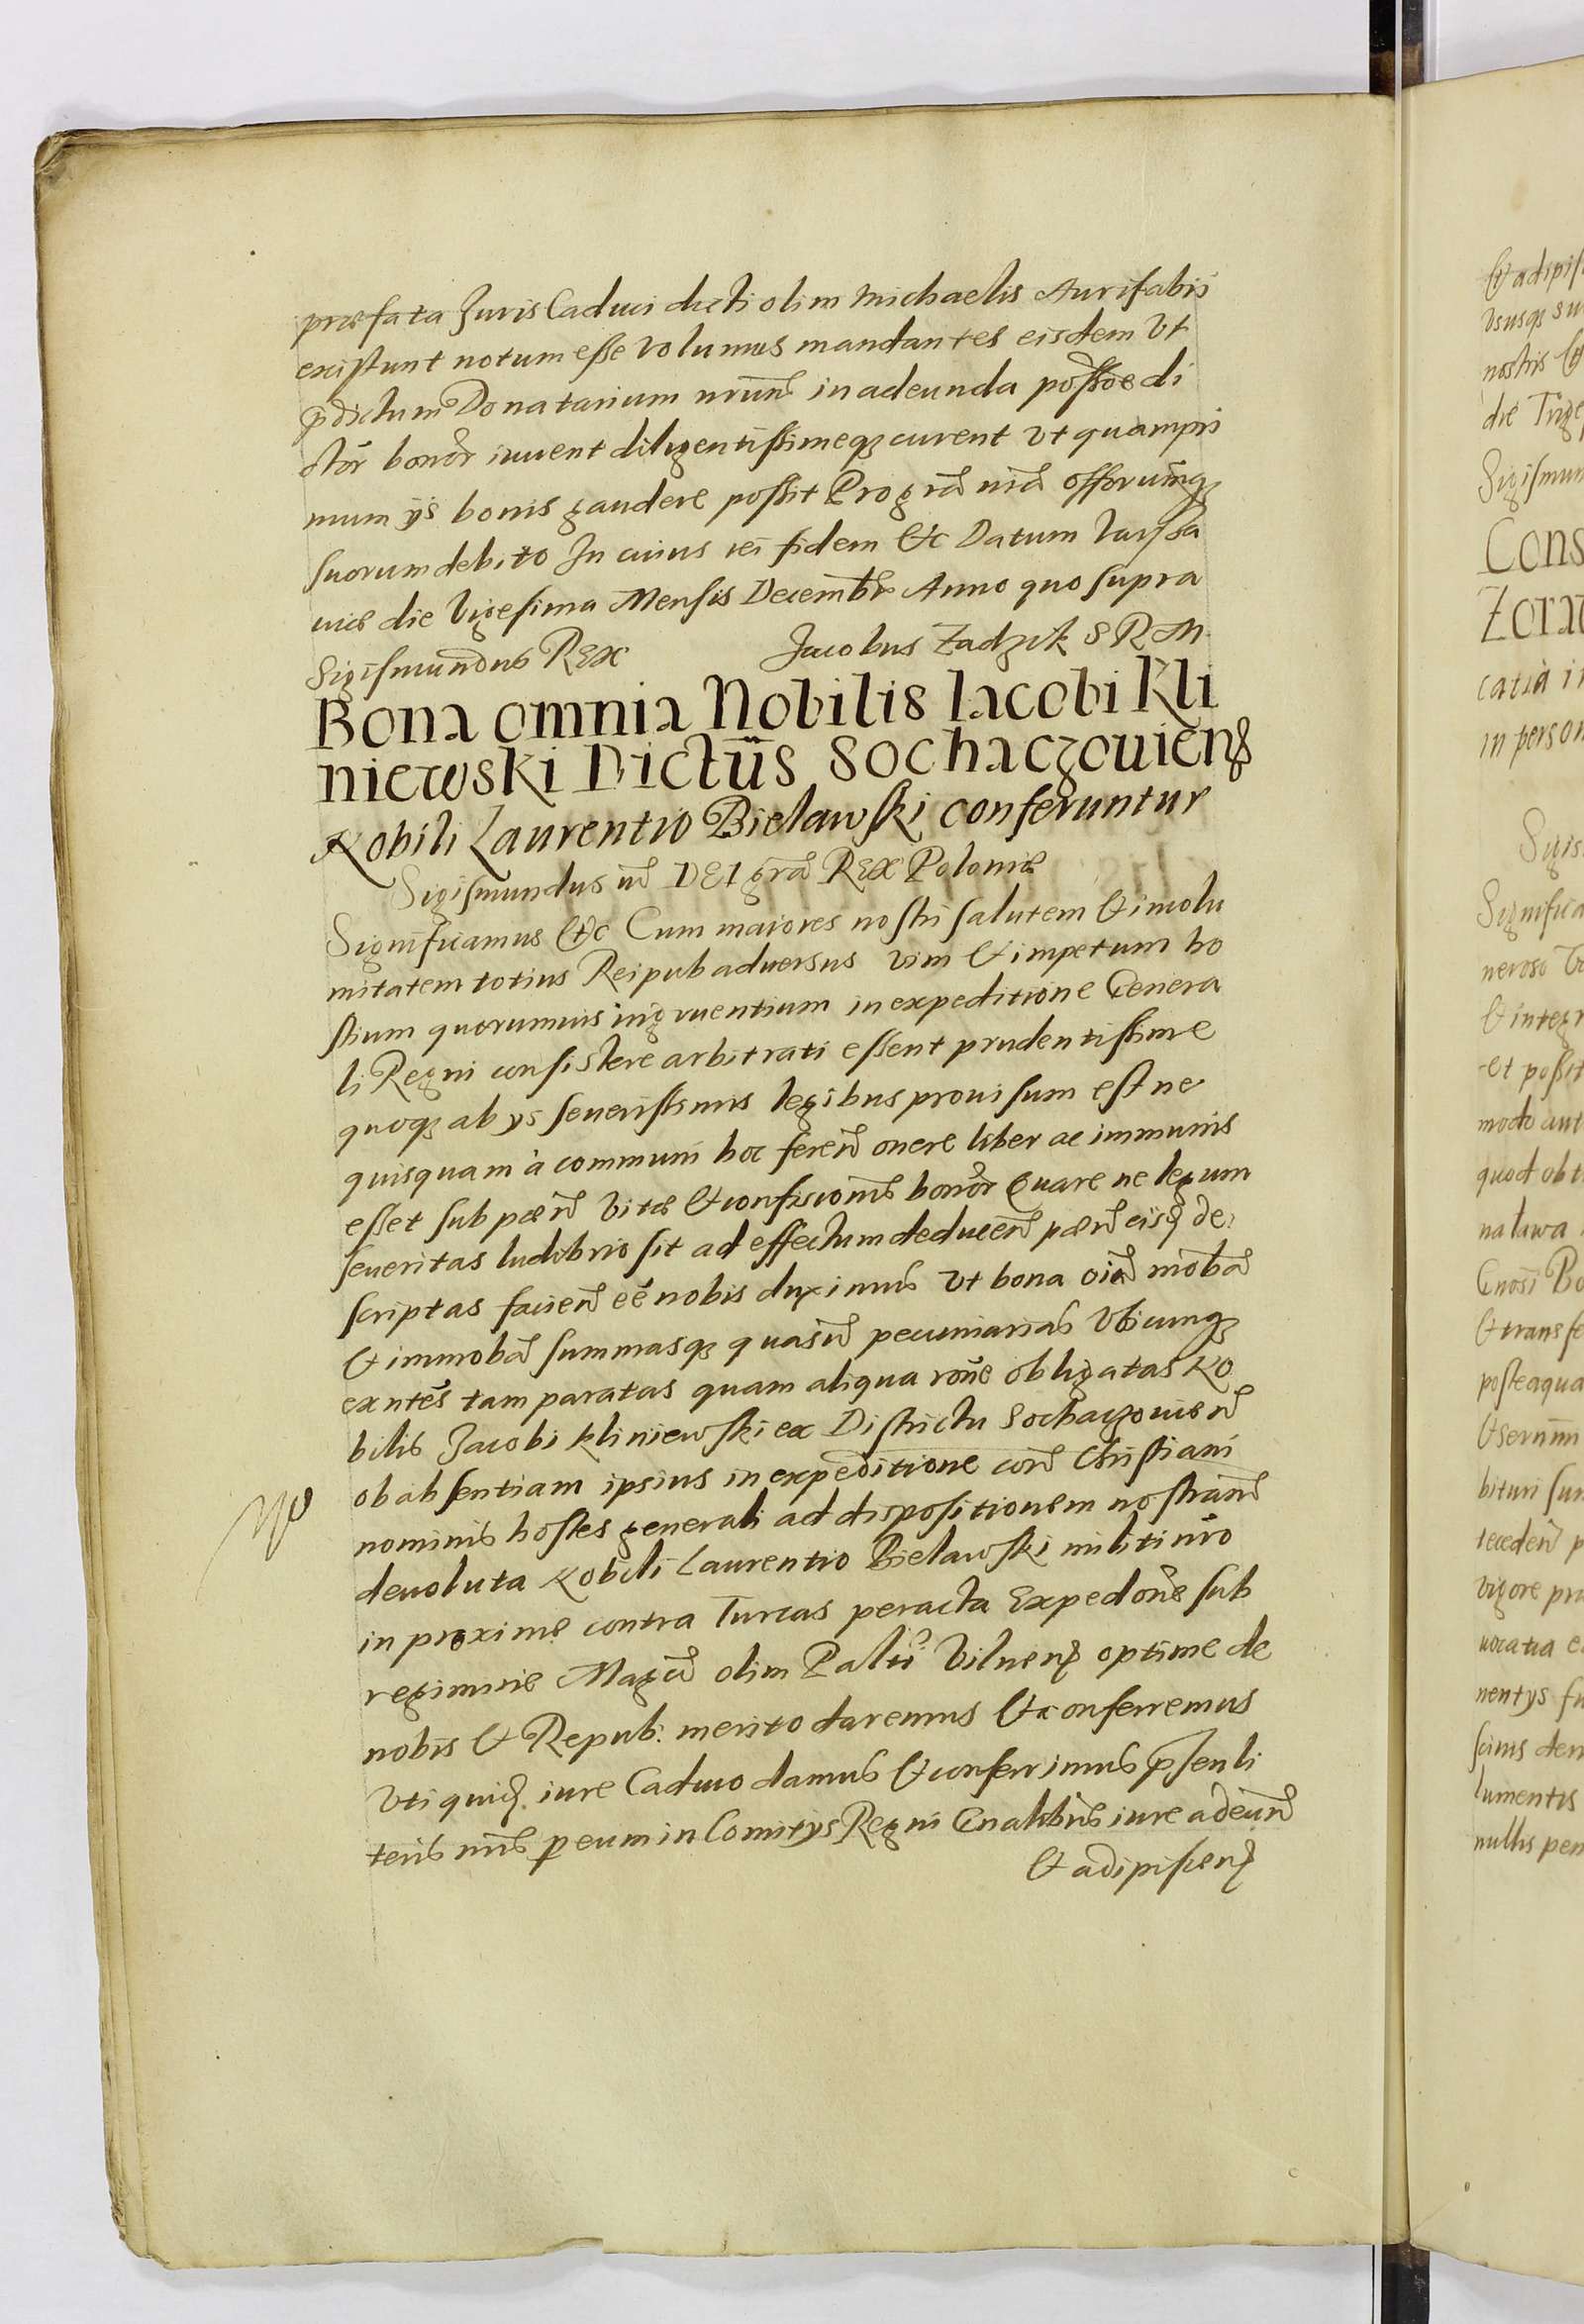 præfata Juris Caduci dicti olim Michaelis Aurifabri
existunt notum esse volumus mandantes eisdem Vt
pdictum Donatarium nrum in adeunda possoe di
ctor bonor iuuent diligentissimeqz curent vt quampri
mum ijs bonis gaudere possit Pro gra nra offorumqz
suorum debito In cuius rei fidem &c Datum Varsa
uiæ die Vigesima Mensis Decembr Anno quo supra
Sigismundus REX Jacobus Zadzik S R M.
Bona omnia Nobilis Iacobi Kli
niewski Dictus Sochaczouiens
Nobili Laurentio Bielawski conferuntur
Sigismundus iii DEI gra REX Poloniæ
Significamus &c Cum maiores nostri salutem & incolu
mitatem totius Reipub aduersus vim & impetum ho
stium quorumuis ingruentium in expeditione Genera
li Regni consistere arbitrati essent prudentissime
quoqz ab ys seuerissimis legibus prouisum est ne
quisquam à communi hoc feren onere liber ac immunis
esset sub pæn Vitæ & confiscionis bonor Quare ne legum
seueritas ludibrio sit ad effectum deducen pæn eisd de
scriptas facien eē nobis duximus vt bona oia moba
& immoba summasqz quasuis pecuniarias Vbicunqz
exntes tam paratas quam aliqua rone obligatas No
bilis Jacobi Kliniewski ex Districtu Sochaczouien
ob absentiam ipsius in expeditione con Christiani
nominis hostes generali ad dispositionem nostram
deuoluta Nobili Laurentio Bielawski militi nro
in proxime contra Turcas peracta Expedone sub
regimine Magci olim Palti Vilnens optime de
nobis & Repub. merito daremus & conferremus
Vti quid. iure Caduco damus & conferrimus psenti
teris nris p eum in Comitys Regni Gnalibus iure adeun
& adipiscend